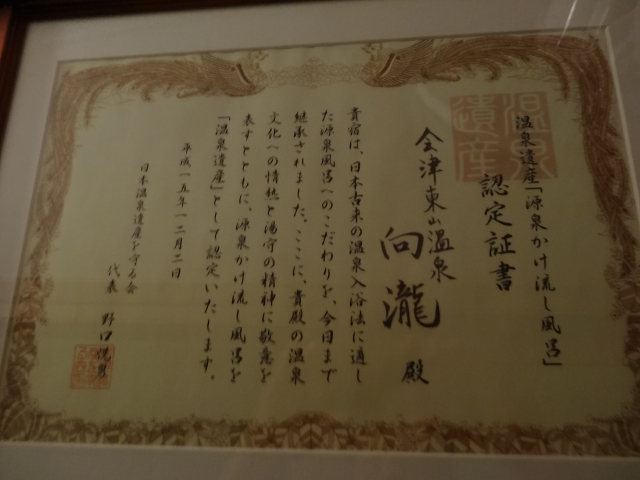 温泉遺産
温泉遺産「源泉かけ流し風呂」
認定証書
会津東山温泉
向瀧 殿
貴宿は、日本古来の温泉入浴法に適し
た源泉風呂へのこだわりを、今日まで
継承されました。ここに、貴殿の温泉
文化への情熱と湯守の精神に敬意を
表すとともに、源泉かけ流し風呂を
「温泉遺産」として認定いたします。
平成一五年一二月二日
日本温泉遺産を守る会
代表 野口悦男